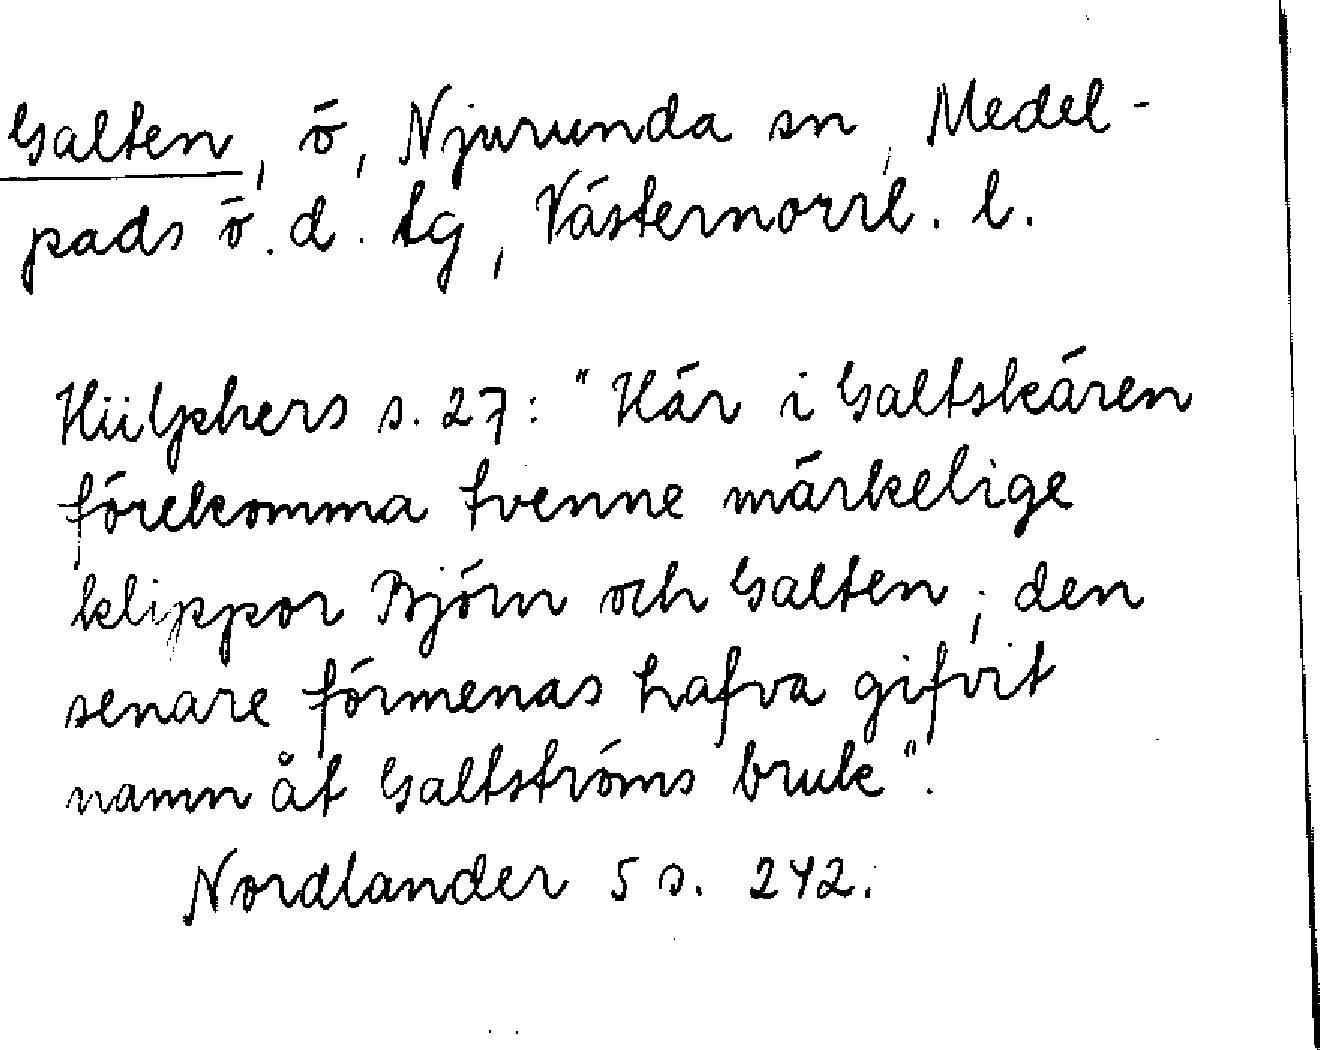 Galten, ö, Njurunda sn, Medel-
pads ö. d. tg, Västernorrl. l.
Hülphers s. 27: "Här i Galtskären
förekomma tvenne märkelige
klippor Björn och Galten; den
senare förmenas hafva gifvit
namn åt Galtströms bruk".
Nordlander 5 s. 242.